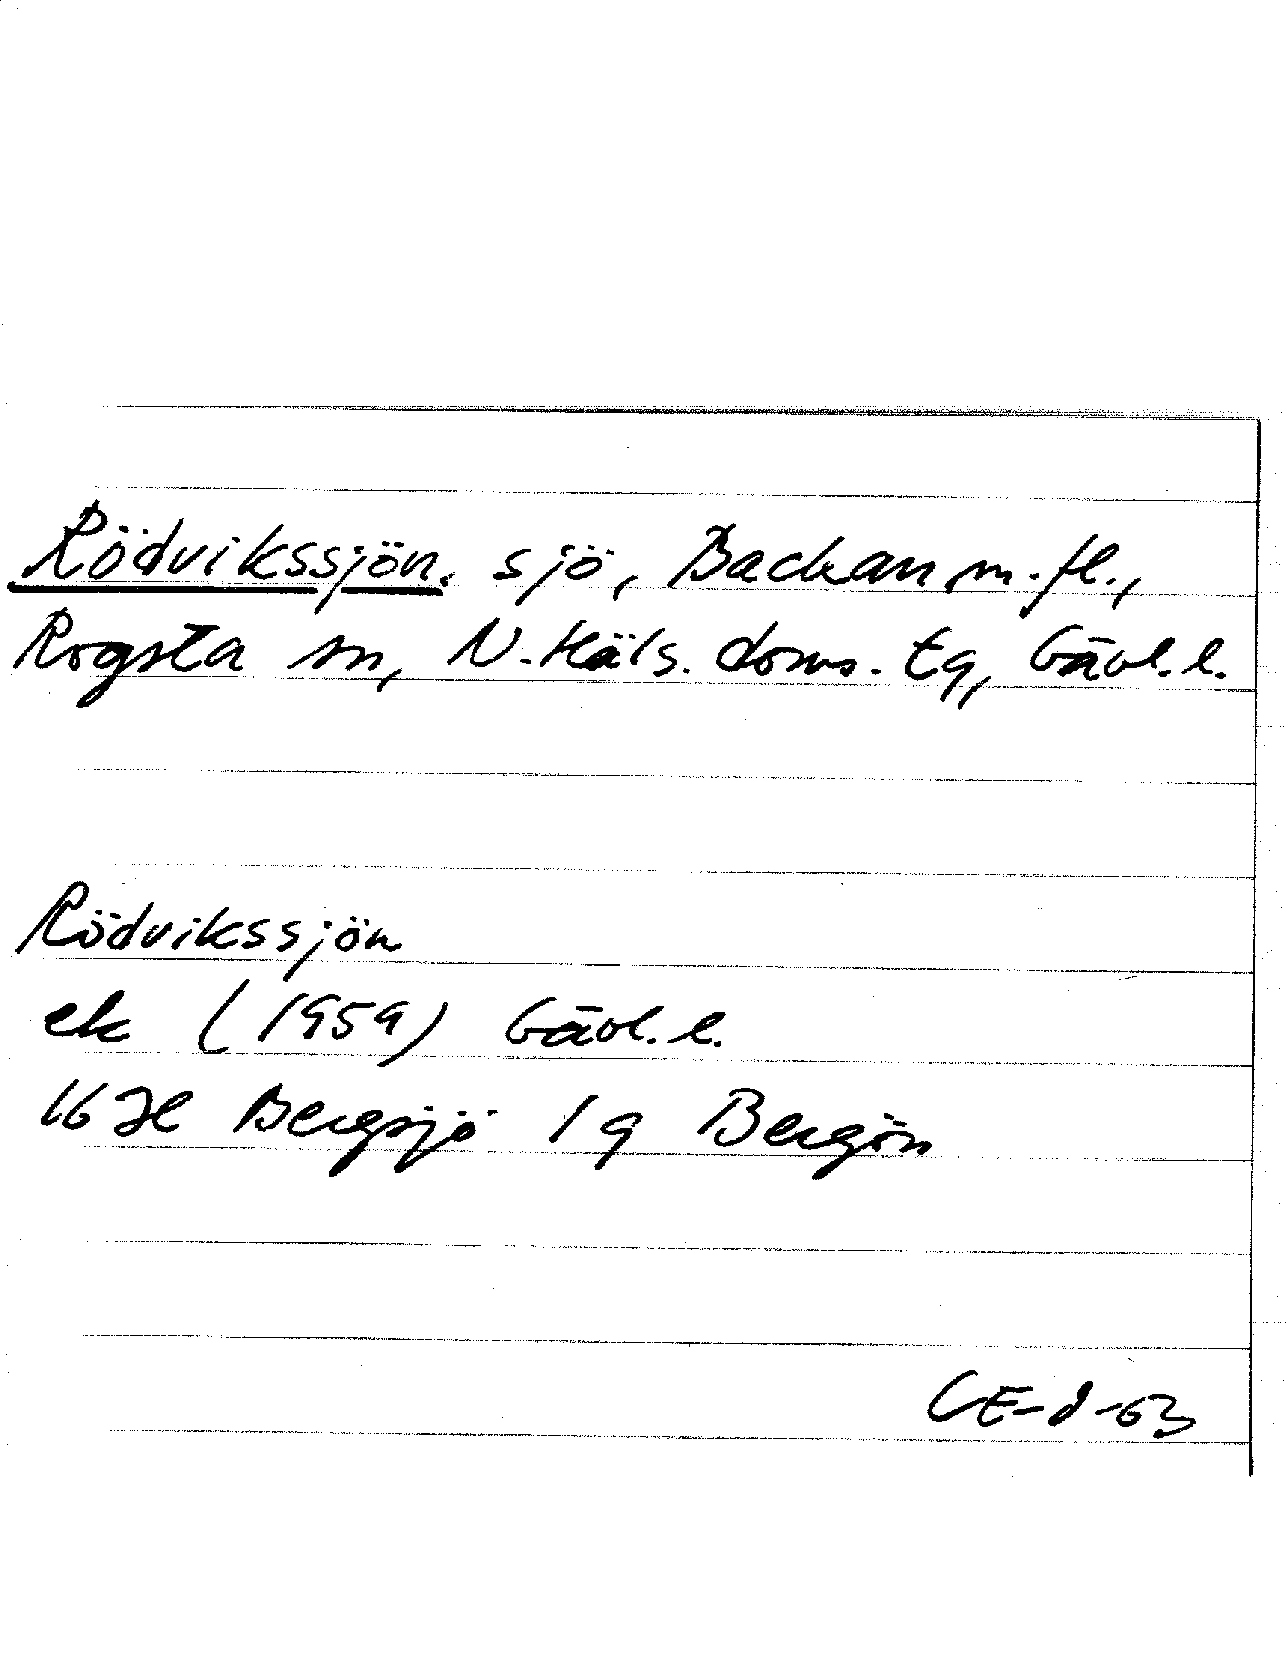 Rödvikssjön, sjö, Backan m.fl.,
Rogsta sn, N.Häls. doms. tg, Gävl.l.
Rödvikssjön
ek (1959) Gävl.l.
16 H Bergsjö 1g Bergön
CE-d-63